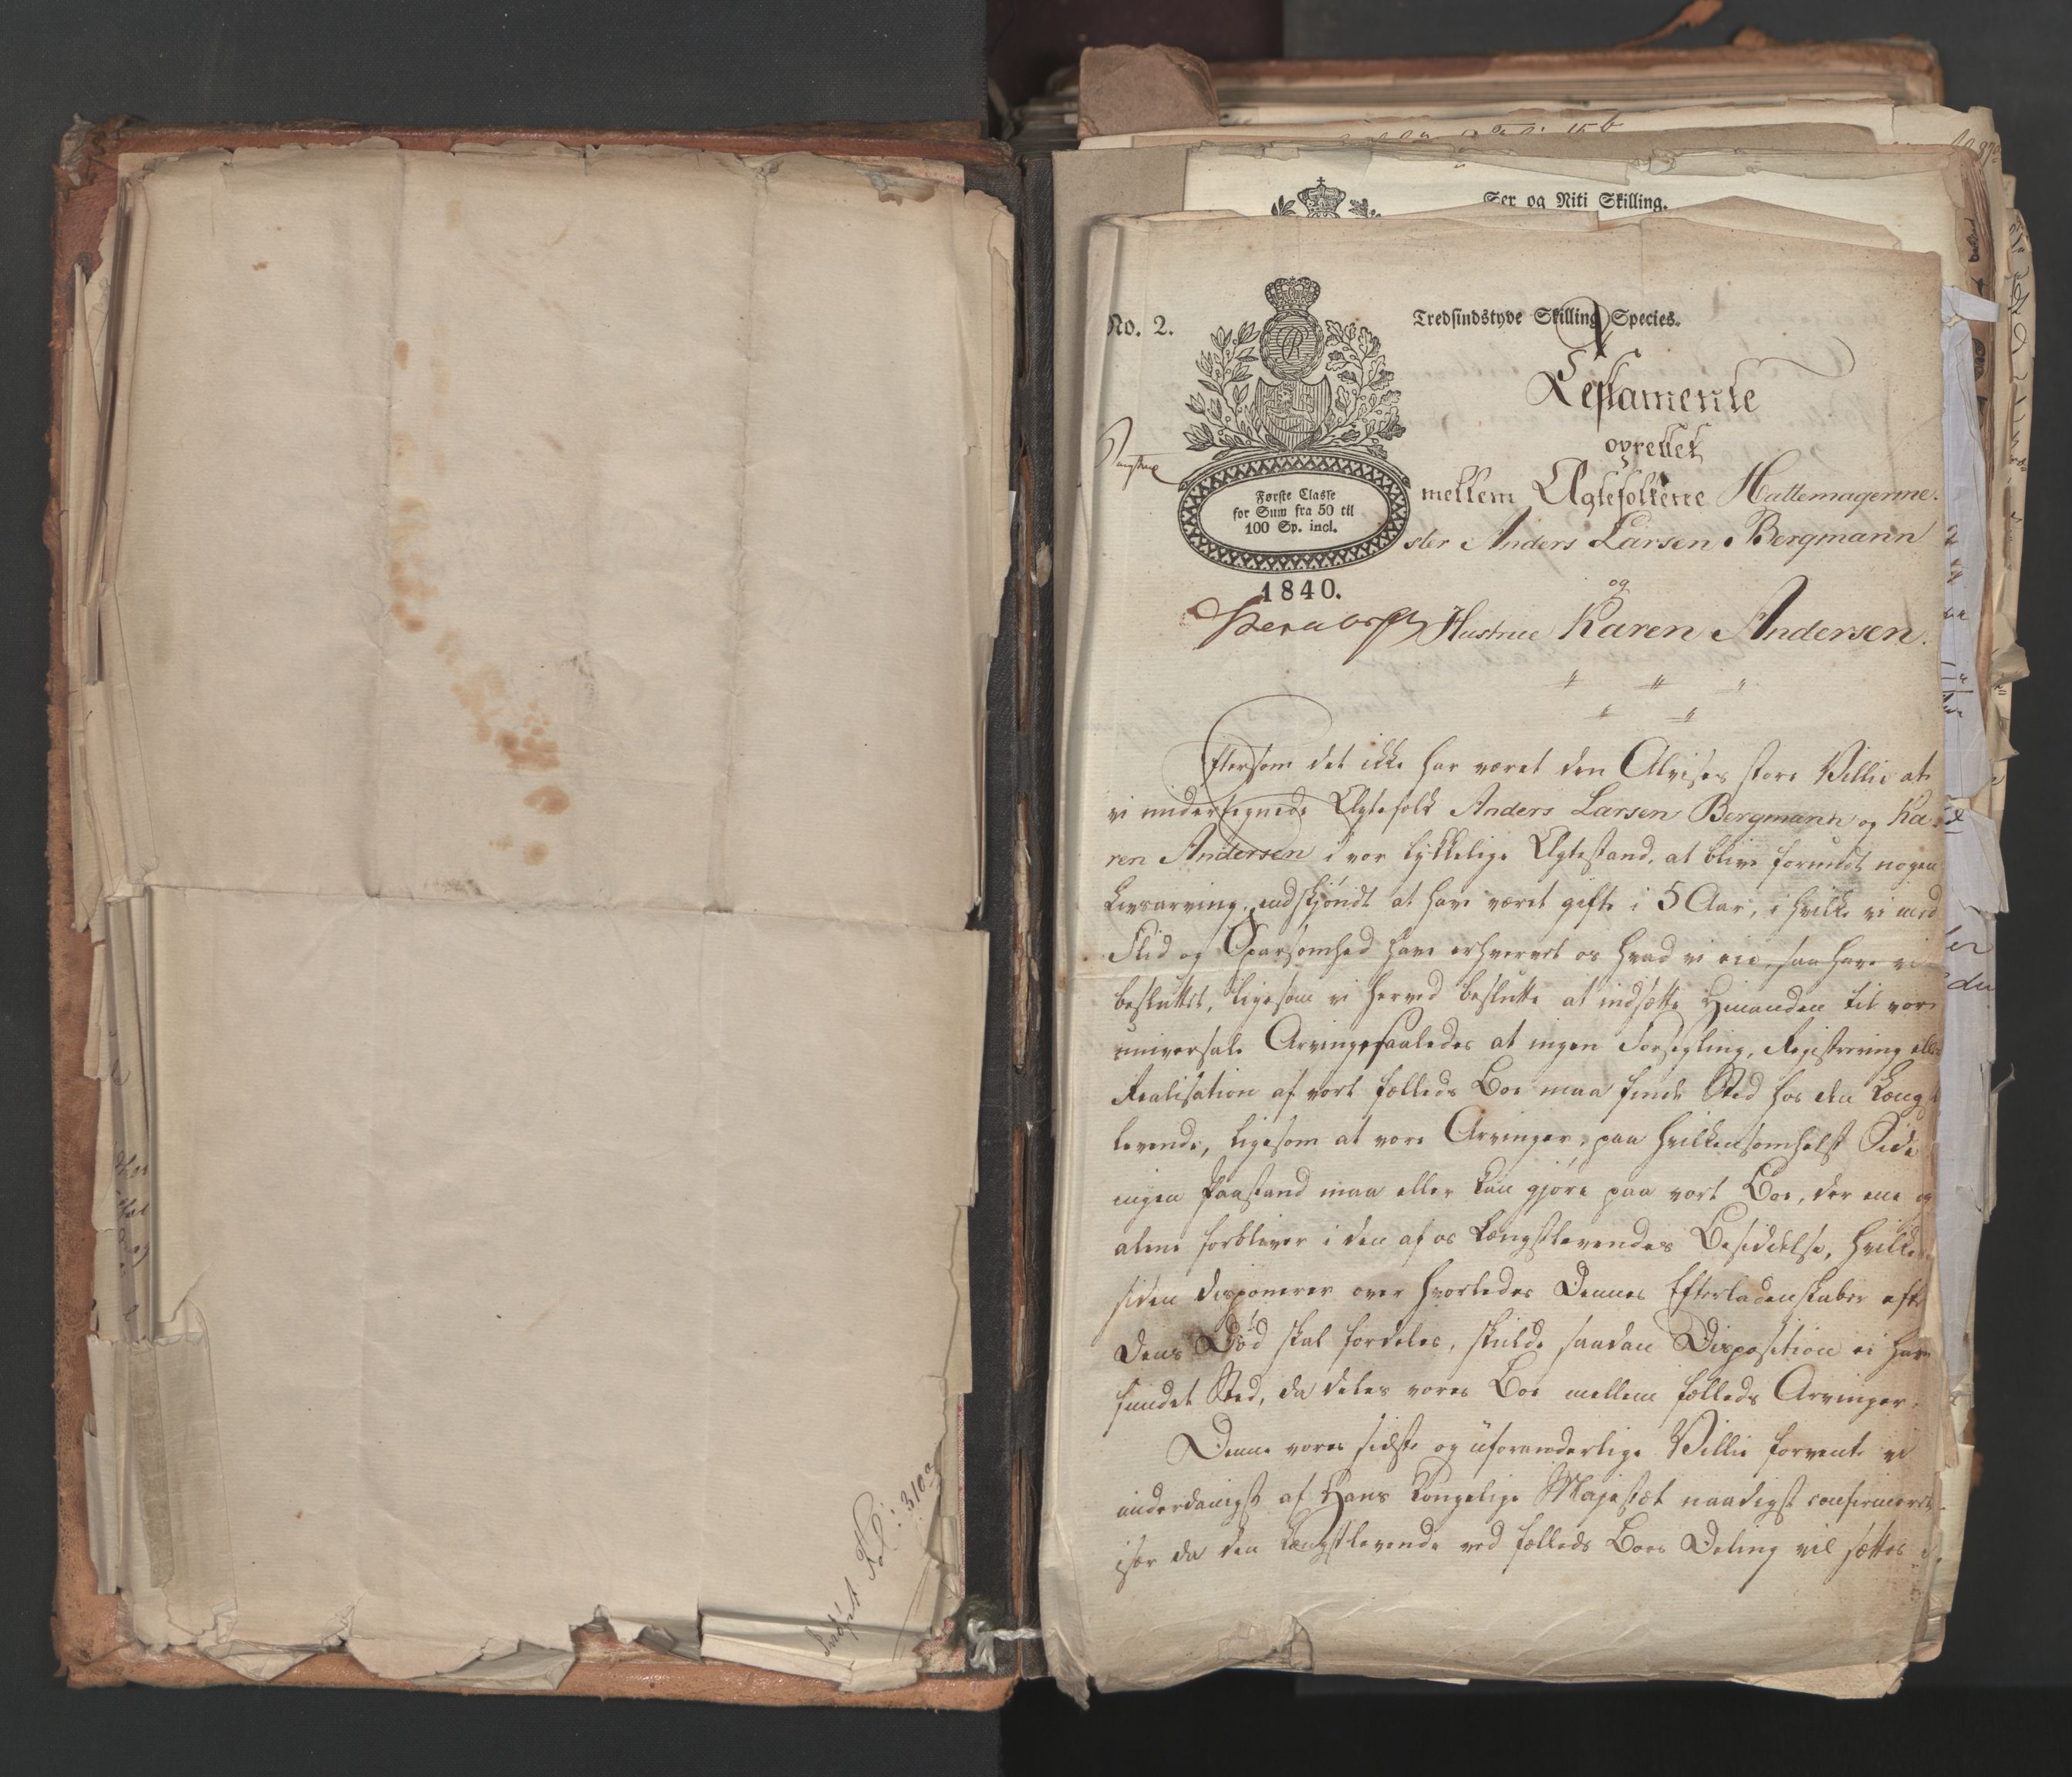 Indført Fol: 310a
Sex og Niti Skilling.
No. 2.
Tredsindstyve Skilling Species.
Første Classe
for Sum fra 50 til
100 Sp. incl.
1840.
Testamente
oprettet
mellem Ægtefolkene Hattemagerme-
ster Anders Larsen Bergmann
og
Hustrue Karen Andersen.
Eftersom det ikke har været den Alvises store Villie at
vi undertegnede Ægtefolk Anders Larsen Bergmann og Ka-
ren Andersen i vor lykkelige Ægtestand, at blive forundt nogen
Livsarving, endskjöndt at have været gifte i 5 Aar, i hvilke vi med
Flid og Sparsomhed have erhvervet os hvad vi eie, saa have vi
besluttet, ligesom vi herved beslutte at indsætte Hinanden til vore
universale Arvinge saaledes at ingen Forsegling, Registrering eller
Realisation af vort fælleds Boe maa finde Sted hos den Længst
levende, ligesom at vore Arvinger, paa hvilkensomhelst Side
ingen Paastand maa eller kan gjöre paa vort Boe, der ene og
alene forbliver i den af os Længstlevendes Besiddelse, hvilken
siden disponerer over hvorledes Dennes Efterladenskaber efter
Dens Död skal fordeles, skulde saadan Disposition ei have
fundet Sted, da deles vores Boe mellem fælleds Arvinger.
Denne vores sidste og uforanderlige Villie forvente vi
underdanigst af Hans Kongelige Majestæt naadigst confirmeret,
især da den Længstlevende ved fælleds Boes Deling vil sættes